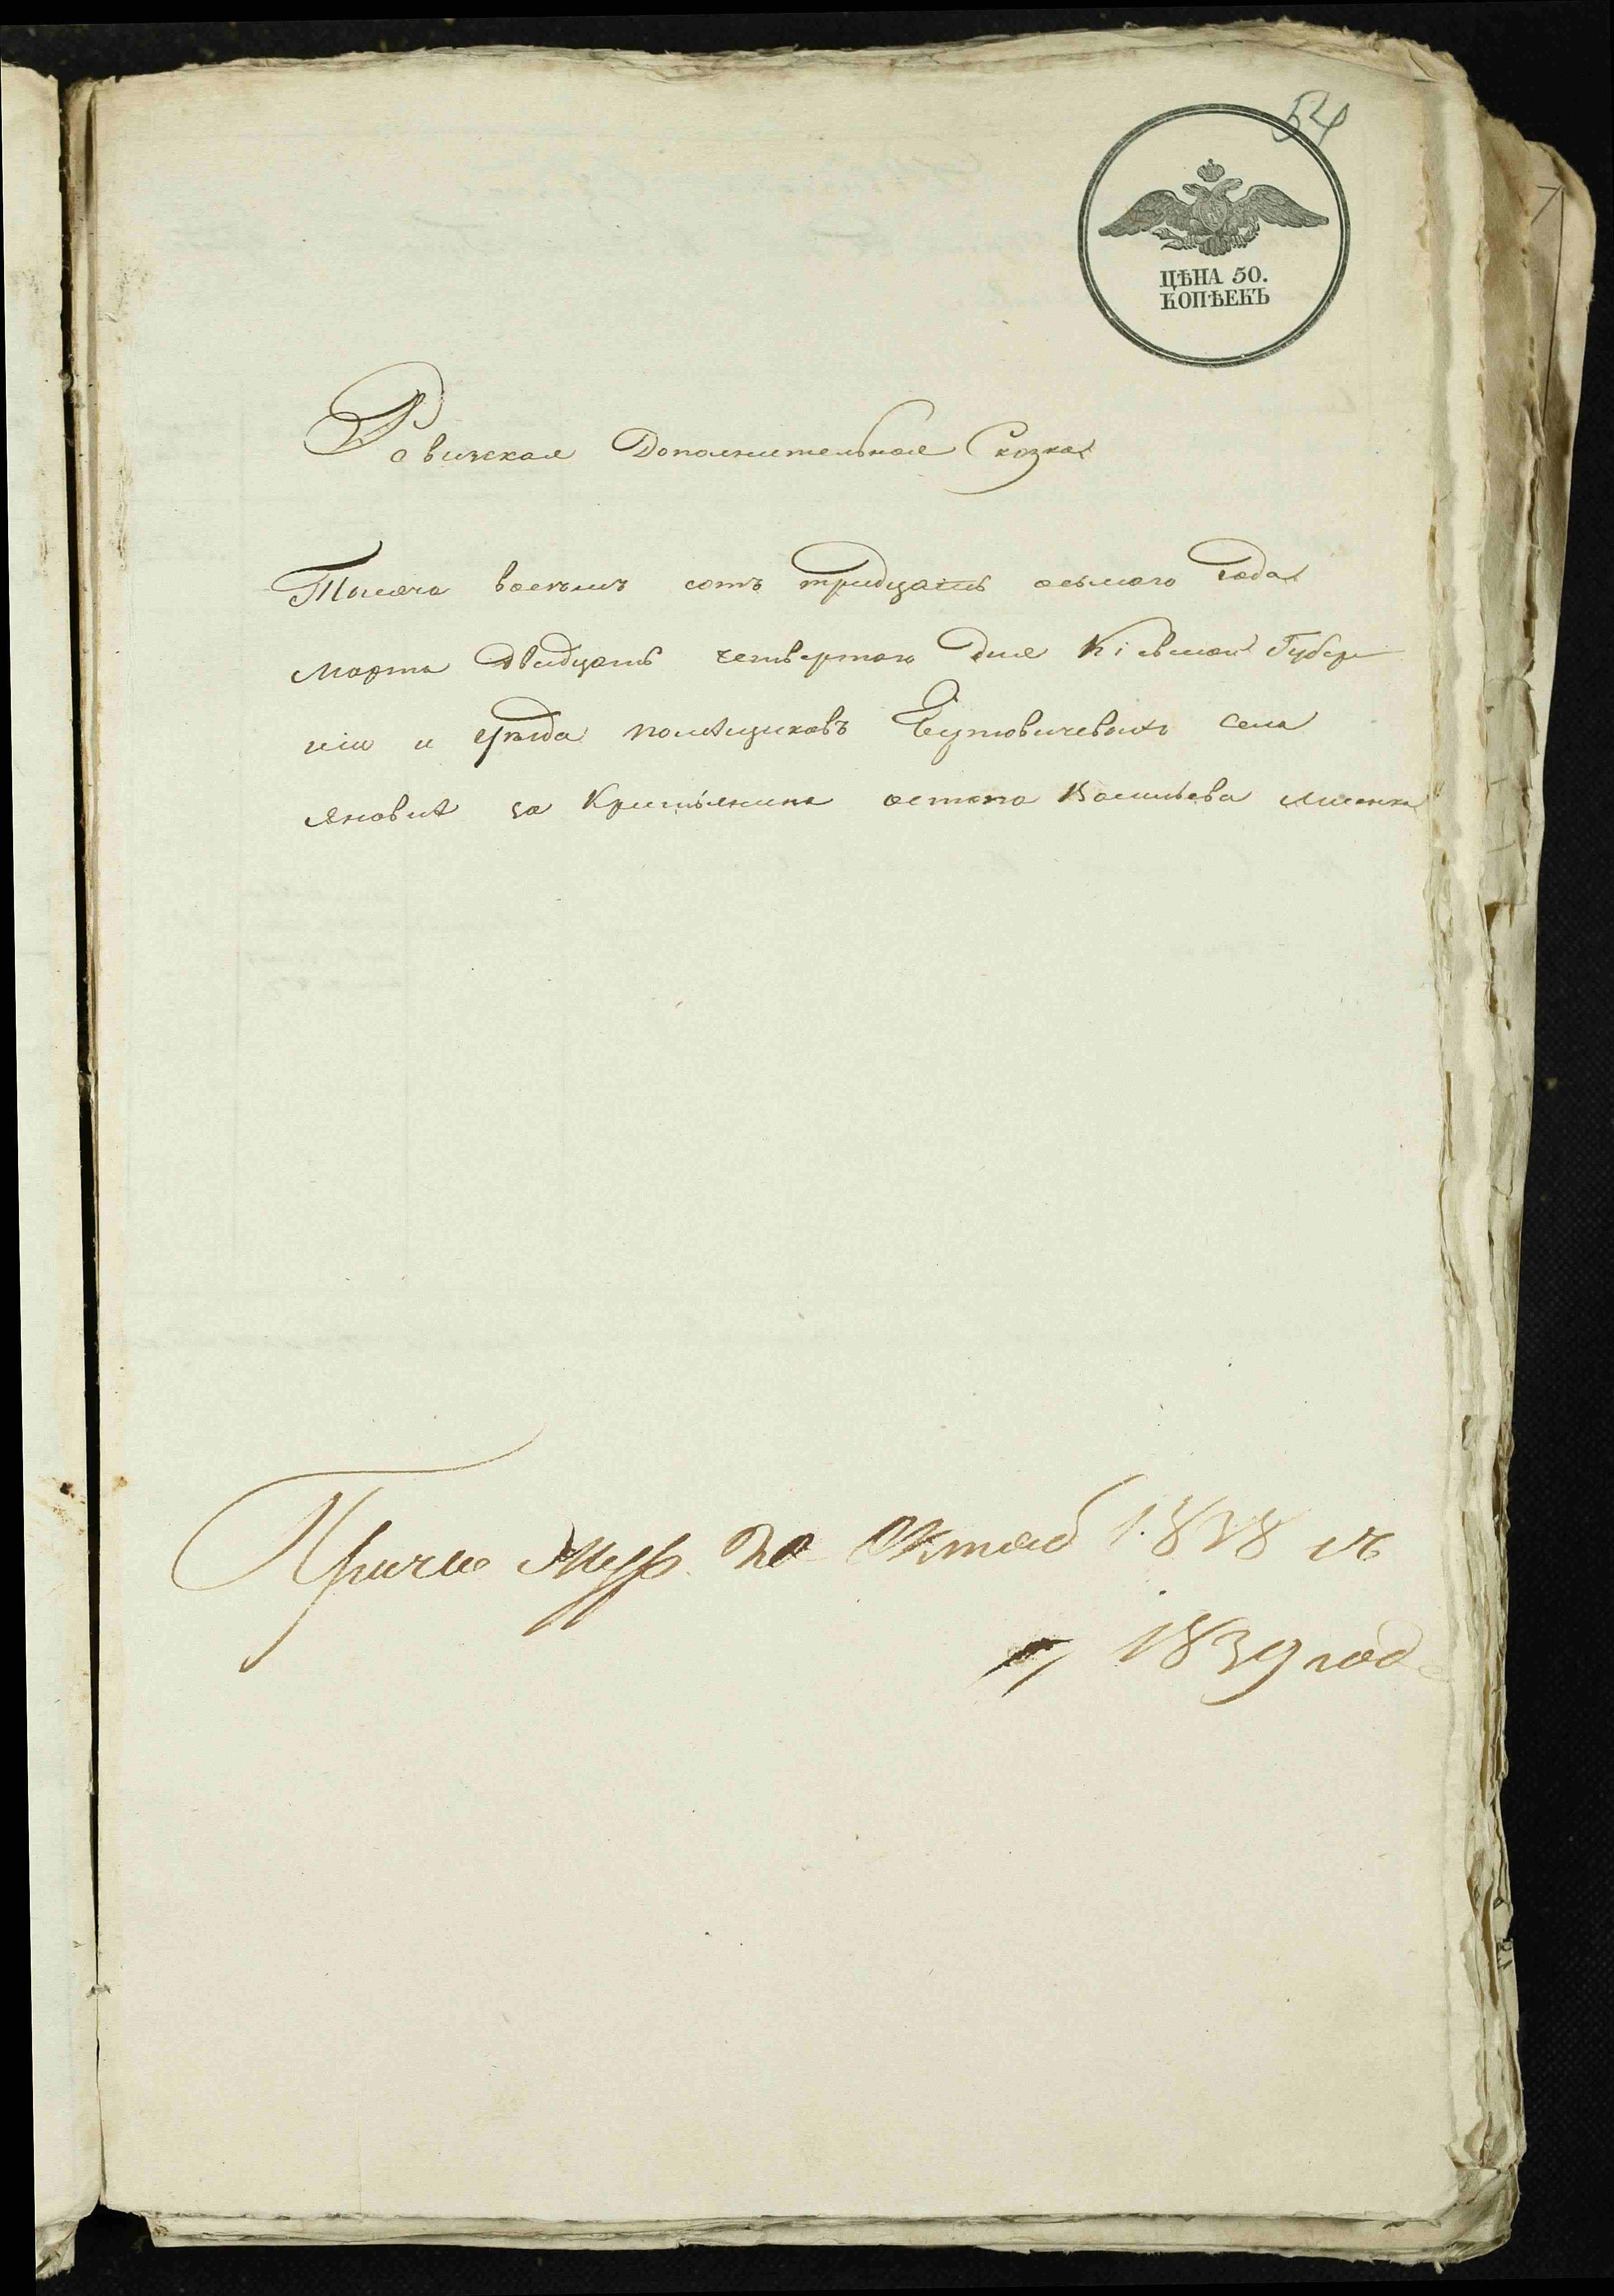 54
ЦѢНА 50.
КОПѢЕКЪ
Ревизская Дополнительная Сказка
Тысяча восемъ сотъ тридцать осмаго Года
марта двадцать четвертаго Дня Кіевской Губер
ніи и уѣзда помѣщиковъ села
Яновки за Крестьянина остапа Васильева
до Октяб 1838
1839 год